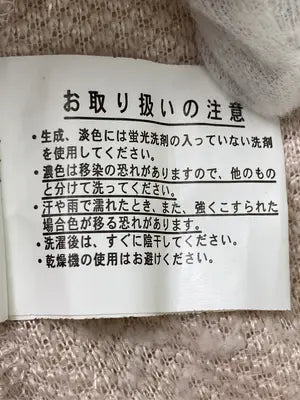 お取り扱いの注意
・生成、淡色には蛍光洗剤の入っていない洗剤
を使用してください。
・濃色は移染の恐れがありますので、他のもの
と分けて洗ってください。
・汗や雨で濡れたとき、また、強くこすられた
場合色が移る恐れがあります。
・洗濯後は、すぐに陰干してください。
・乾燥機の使用はお避けください。